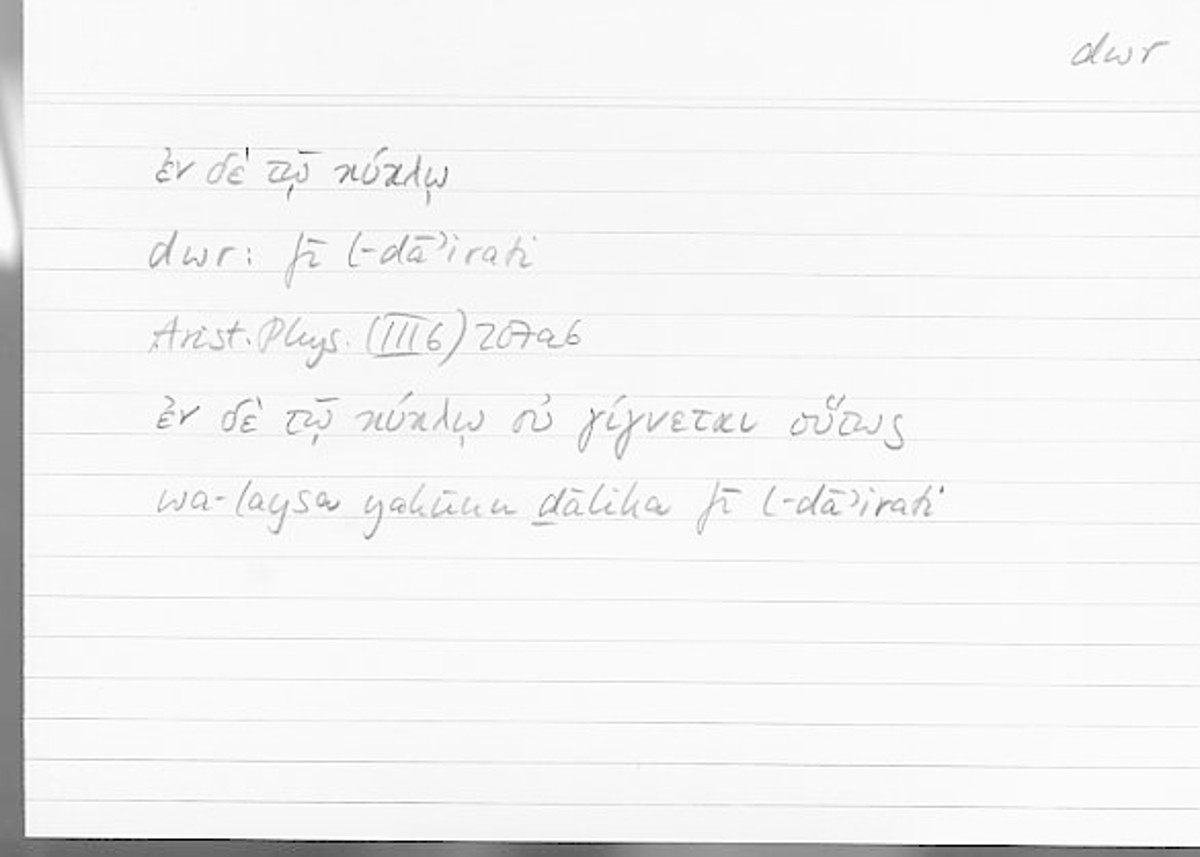 dwr
ἐν δὲ τῷ κύκλῳ
dwr: fī l-dāʾirati
Arist. Phys. (III 6) 207a6
ἐν δὲ τῷ κύκλῳ οὐ γίγνεται οὕτως
wa-laysa yakūnu ḏālika fī l-dāʾirati